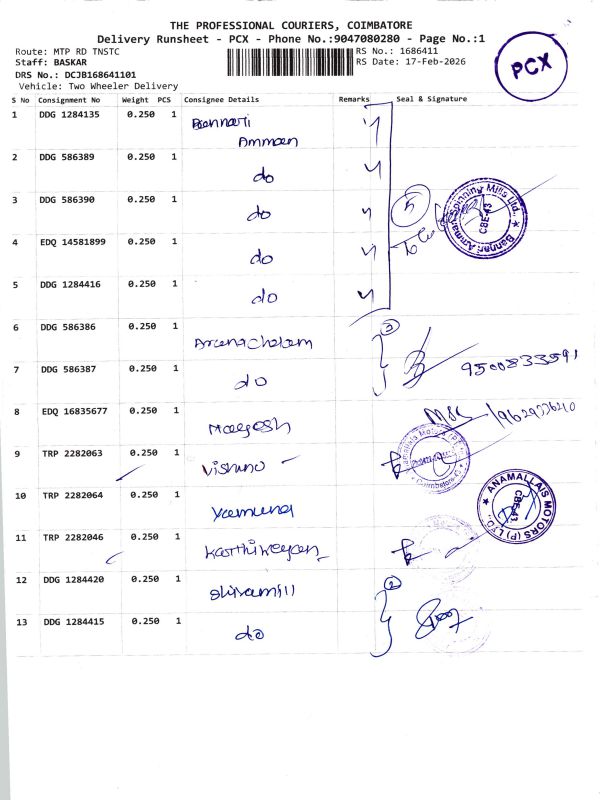 THE PROFESSIONAL COURIERS, COIMBATORE
Delivery Runsheet - PCX - Phone No.:9047080280 - Page No.:1
Route: MTP RD TNSTC
RS No.: 1686411
Staff: BASKAR
RS Date: 17-Feb-2026
DRS No.: DCJB168641101
Vehicle: Two Wheeler Delivery
PCX
S No Consignment No Weight PCS Consignee Details Remarks Seal & Signature
1 DDG 1284135 0.250 1 Bannari
Amman
2 DDG 586389 0.250 1 do
3 DDG 586390 0.250 1 do
4 EDQ 14581899 0.250 1 do
5 DDG 1284416 0.250 1 do
5
Bannari Amman Spinning Mills Ltd.,
CBE-43
6 DDG 586386 0.250 1 Arunachalam
2
7 DDG 586387 0.250 1 do
9500833591
8 EDQ 16835677 0.250 1 Magesh
9 TRP 2282063 0.250 1 Vishnu
10 TRP 2282064 0.250 1 Yamuna
ANAMALLAIS MOTORS (P) LTD.
CBE-43
11 TRP 2282046 0.250 1 Karthikeyan
12 DDG 1284420 0.250 1
2
13 DDG 1284415 0.250 1 do